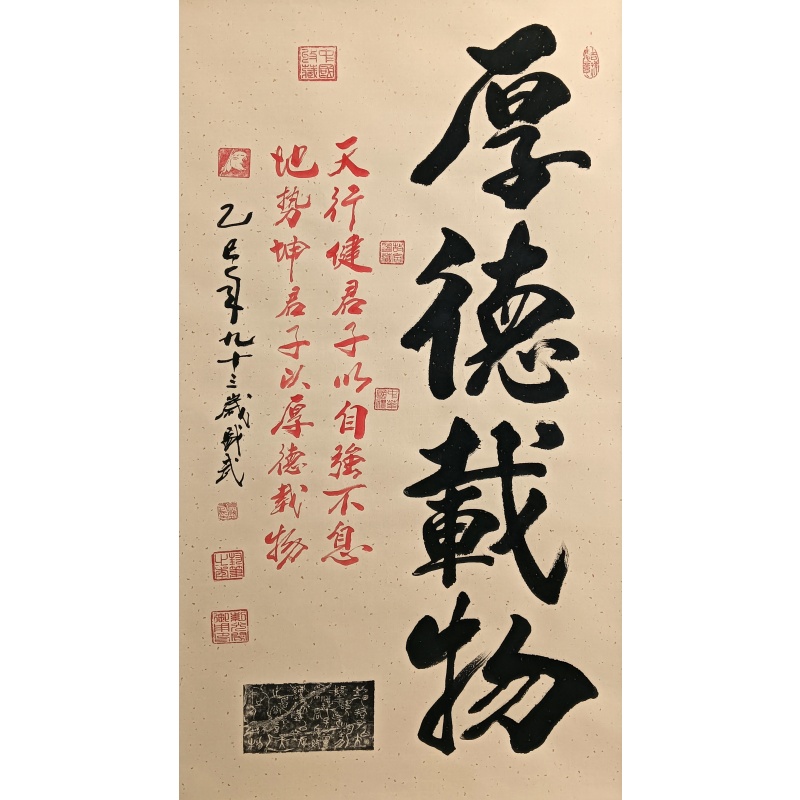 厚德載物
天行健君子以自強不息
地势坤君子以厚德载物
乙巳年九十三歲